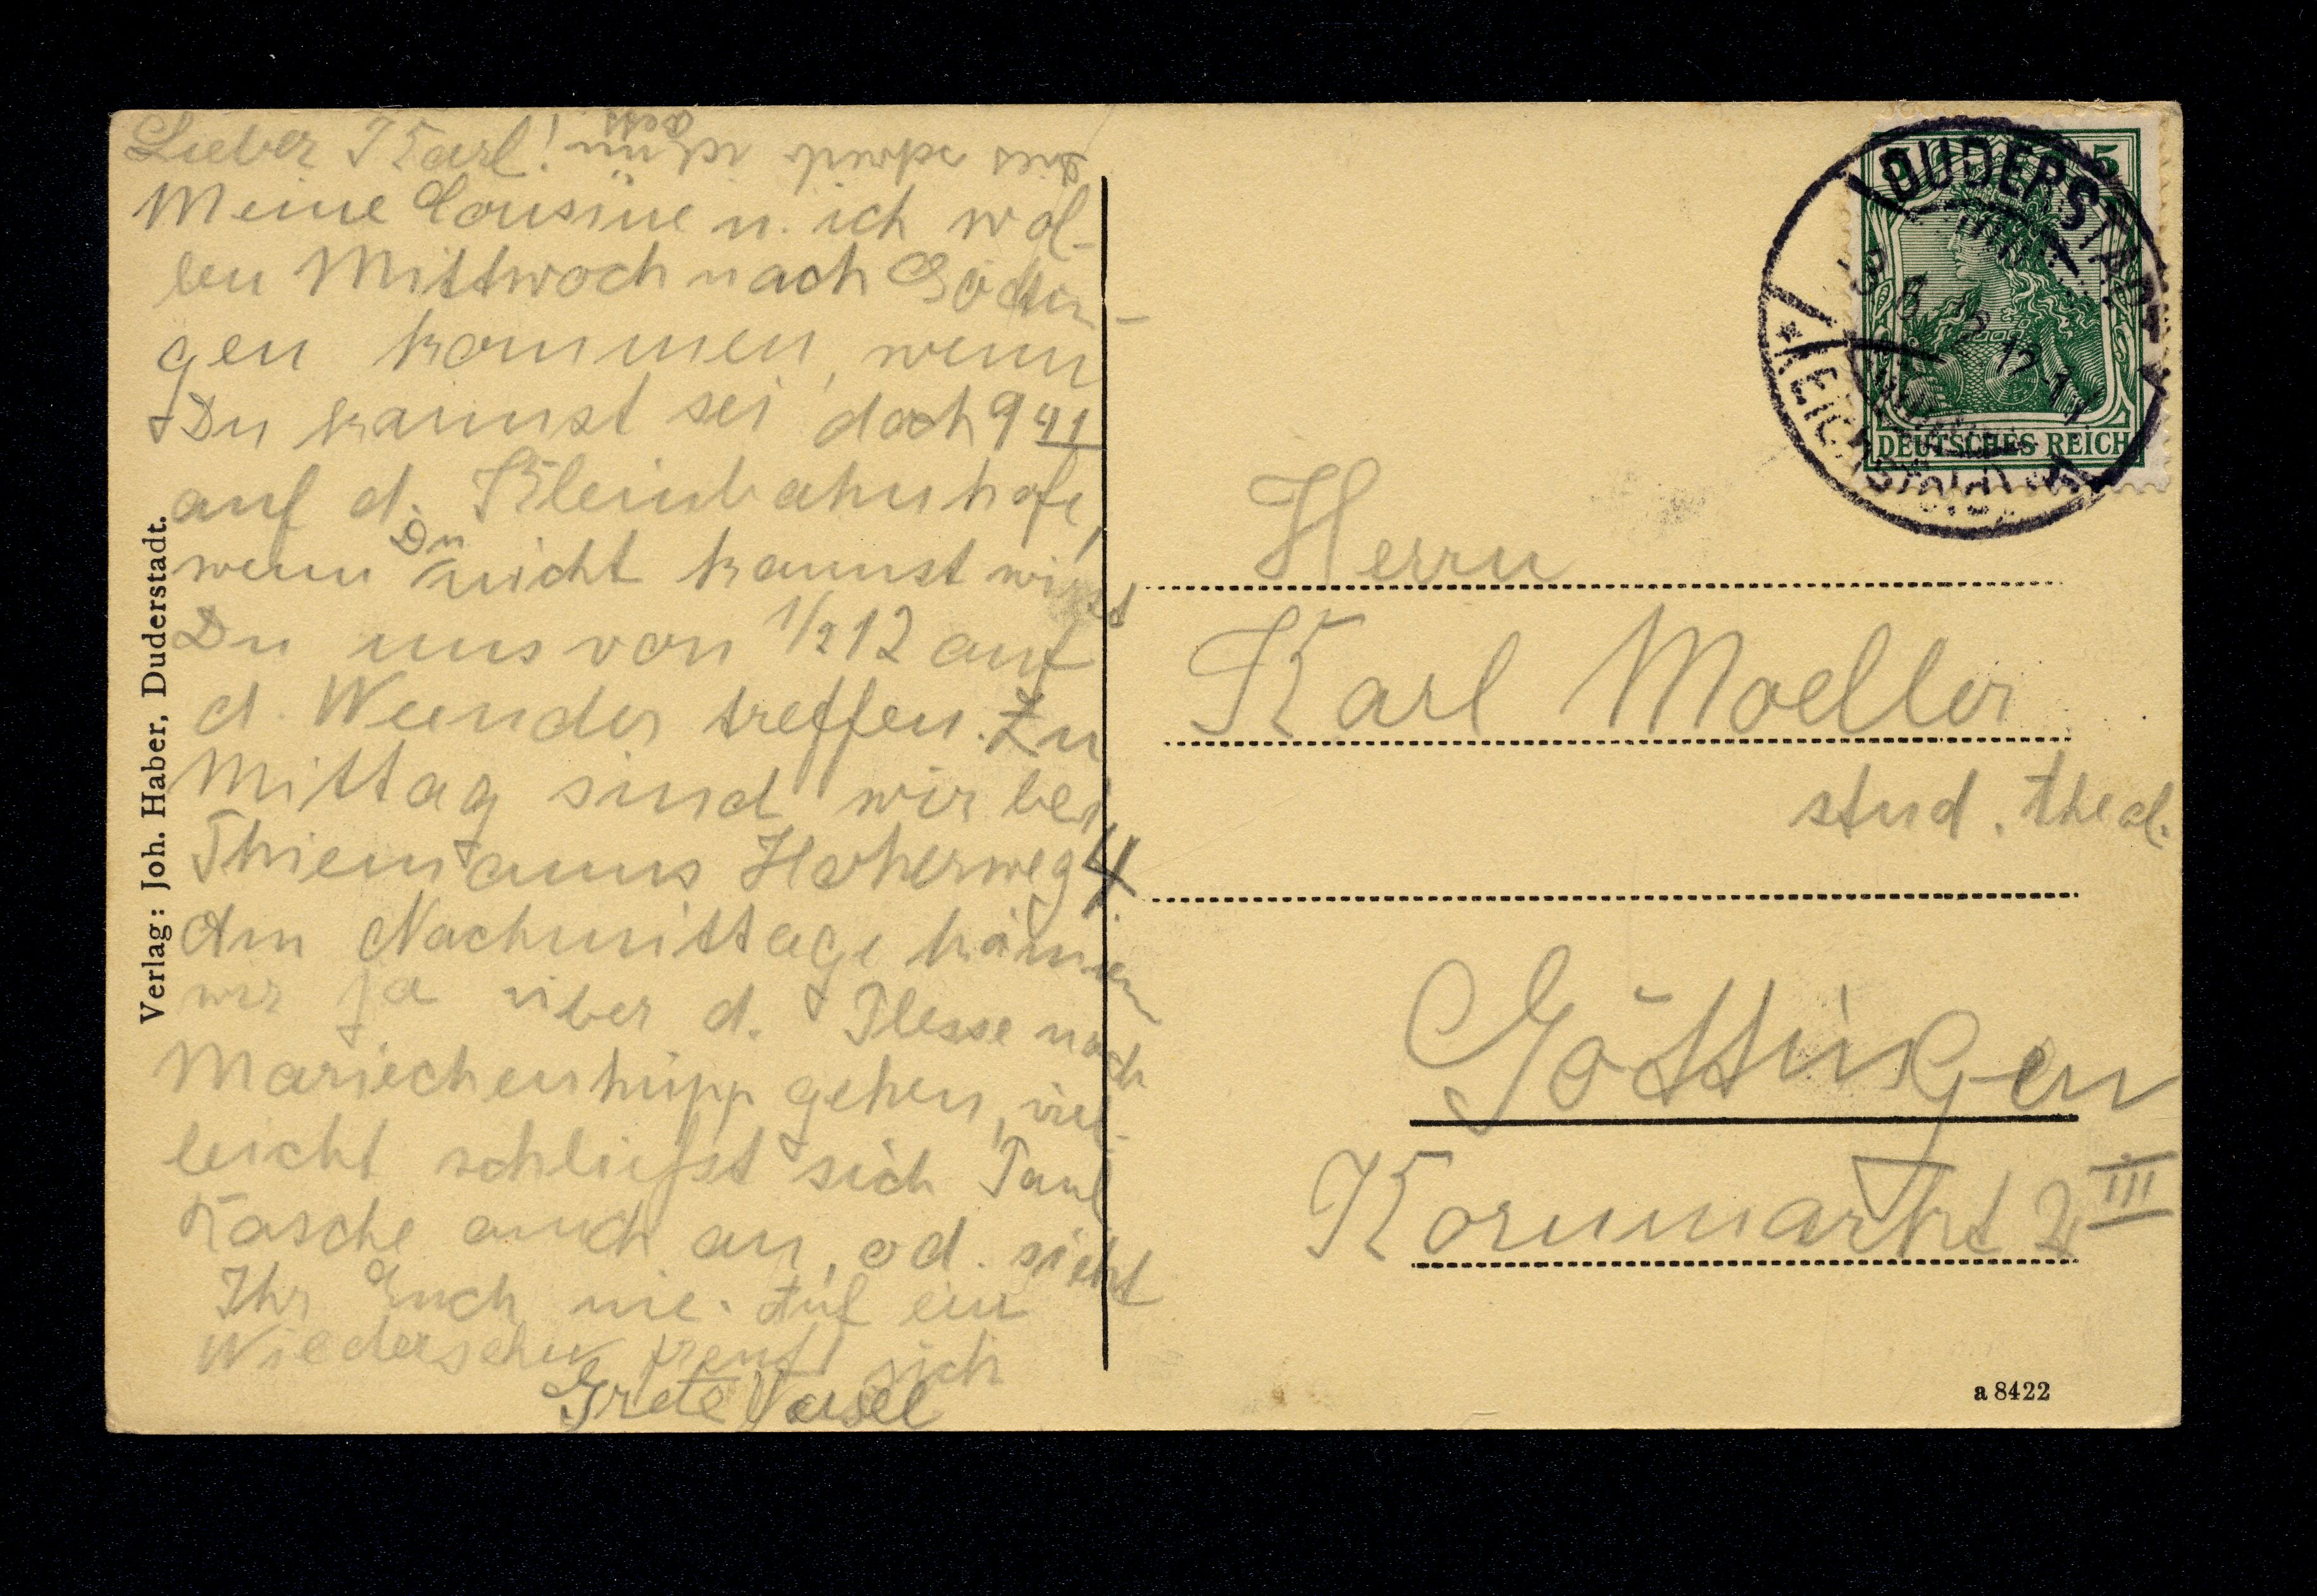 Lieber Karl!
Meine Cousine u. ich wol-
len Mittwoch nach Göttin-
gen kommen, wenn
Du kannst sei doch 9 41
auf d. Kleinbahnhofe,
wenn Du nicht kannst wirst
Du uns von 1/2 12 auf
d. Weender treffen. Zu
Mittag sind wir bei
Thiemanns Hoherweg 4.
Am Nachmittage können
wir ja über d. Plesse nach
Mariechenhüpp gehen, viel-
leicht schließt sich Paul
Kasche auch an, od. sieht
Ihr Euch nie. Auf ein
Wiedersehn freut sich
Grete
Verlag: Joh. Haber, Duderstadt.
DUDERSTADT
* (EICHSFELD)
5
DEUTSCHES REICH
Herrn
Karl Moeller
stud. theol.
Göttingen
Kornmarkt 2 III
a 8422